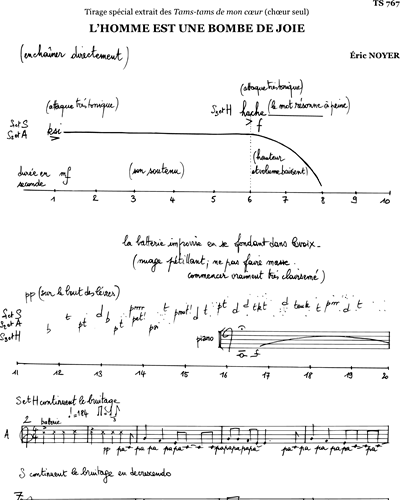 TS 767
Tirage spécial extrait des Tams-tams de mon cœur (chœur seul)
L'HOMME EST UNE BOMBE DE JOIE
(enchaîner directement)
Éric NOYER
(attaque très tonique)
(attaque très tonique)
S et H hache (le mot résonne à peine)
S et S
S et A
ksi
f
durée en seconde
mf
(son soutenu)
(hauteur et volume baissent)
1 2 3 4 5 6 7 8 9 10
la batterie improvise en se fondant dans la voix.
(nuage pétillant ; ne pas faire masse.
commencer vraiment très clairsemé)
pp (sur le bruit des lèvres)
S et S
S et A
S et H
b t pt d b p t prrr pot psi t d t pt d d tkt d touk t d t
piano
11 12 13 14 15 16 17 18 19 20
S et H continuent le bruitage
2 batterie
♩=184
A
pp pa pa pa papa papapapapa pa pa papa papa
S continuent le bruitage en decrescendo